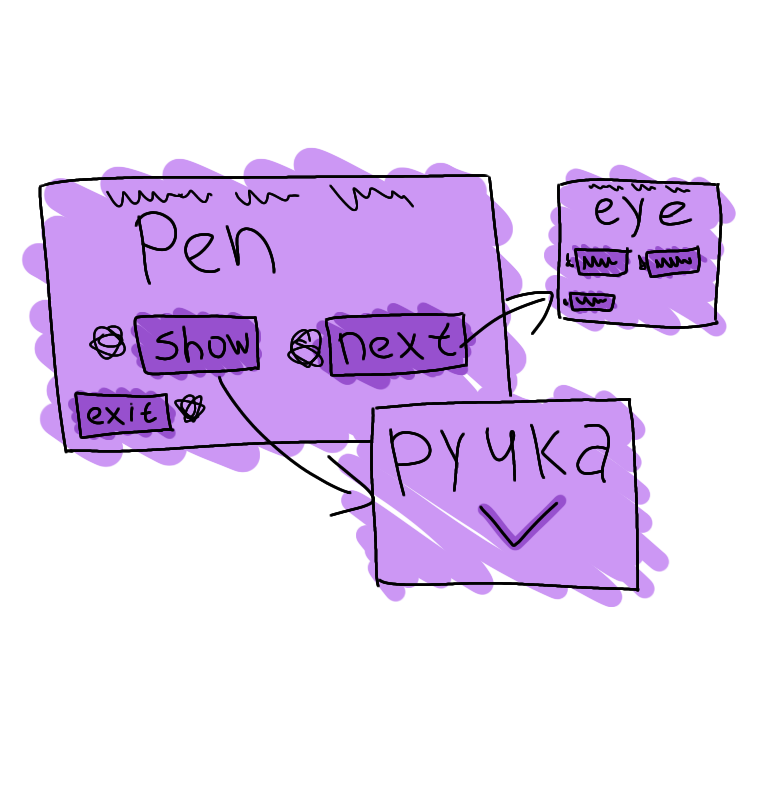 Pen
show next
exit
eye
ручка